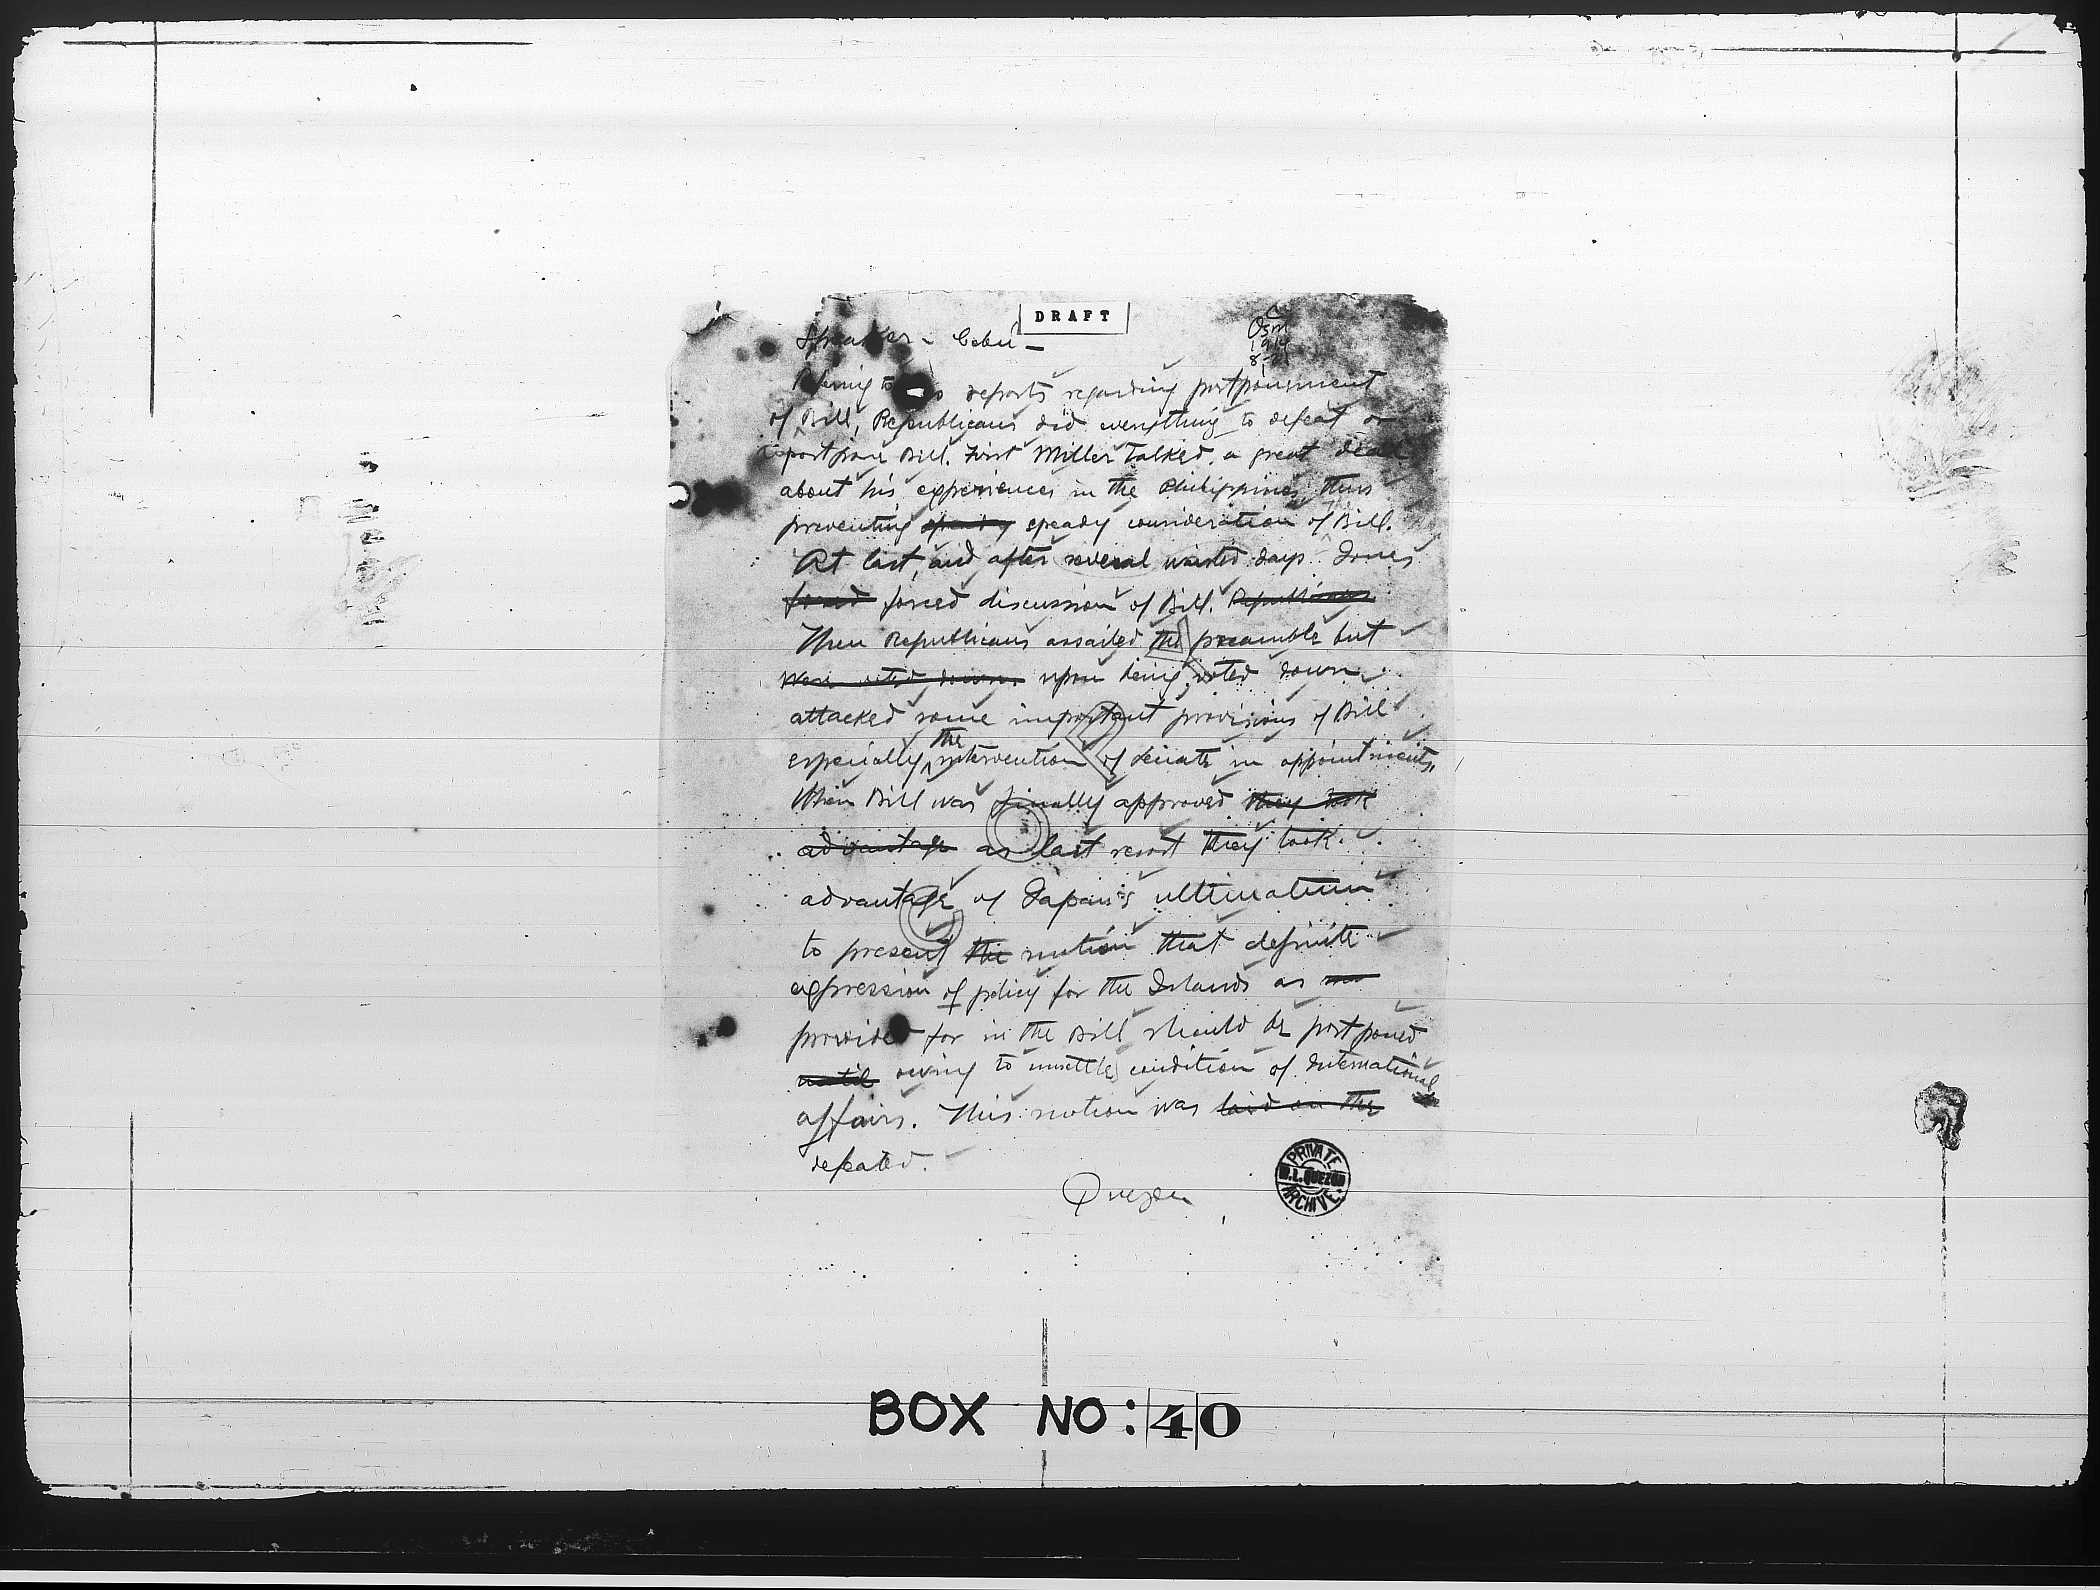 DRAFT
C
Osm
1914
8-21
Speaker - Cebú -
Refering to reports regarding postponement
of Bill, Republicans did everything to defeat or
postpone Bill. First Miller talked a great deal
about his experiences in the Philippines thus
preventing speady consideration of Bill.
At last, and after several wasted days Jones
forced forced discussion of Bill. Republicans
Then Republicans assailed the preamble but
were voted down upon being voted down
attacked some important provisions of Bill
especially the intervention of Senate in appointments.
When Bill was finally approved they took
advantage as last resort they took
advantage of Japan's ultimatum
to present the motion that definite
expression of policy for the Islands as
provided for in the Bill should be postponed
until owing to unsettled condition of International
affairs. This motion was laid on the
defeated.
Quezon
PRIVATE
M.L. QUEZON
ARCHIVE
BOX NO: 40